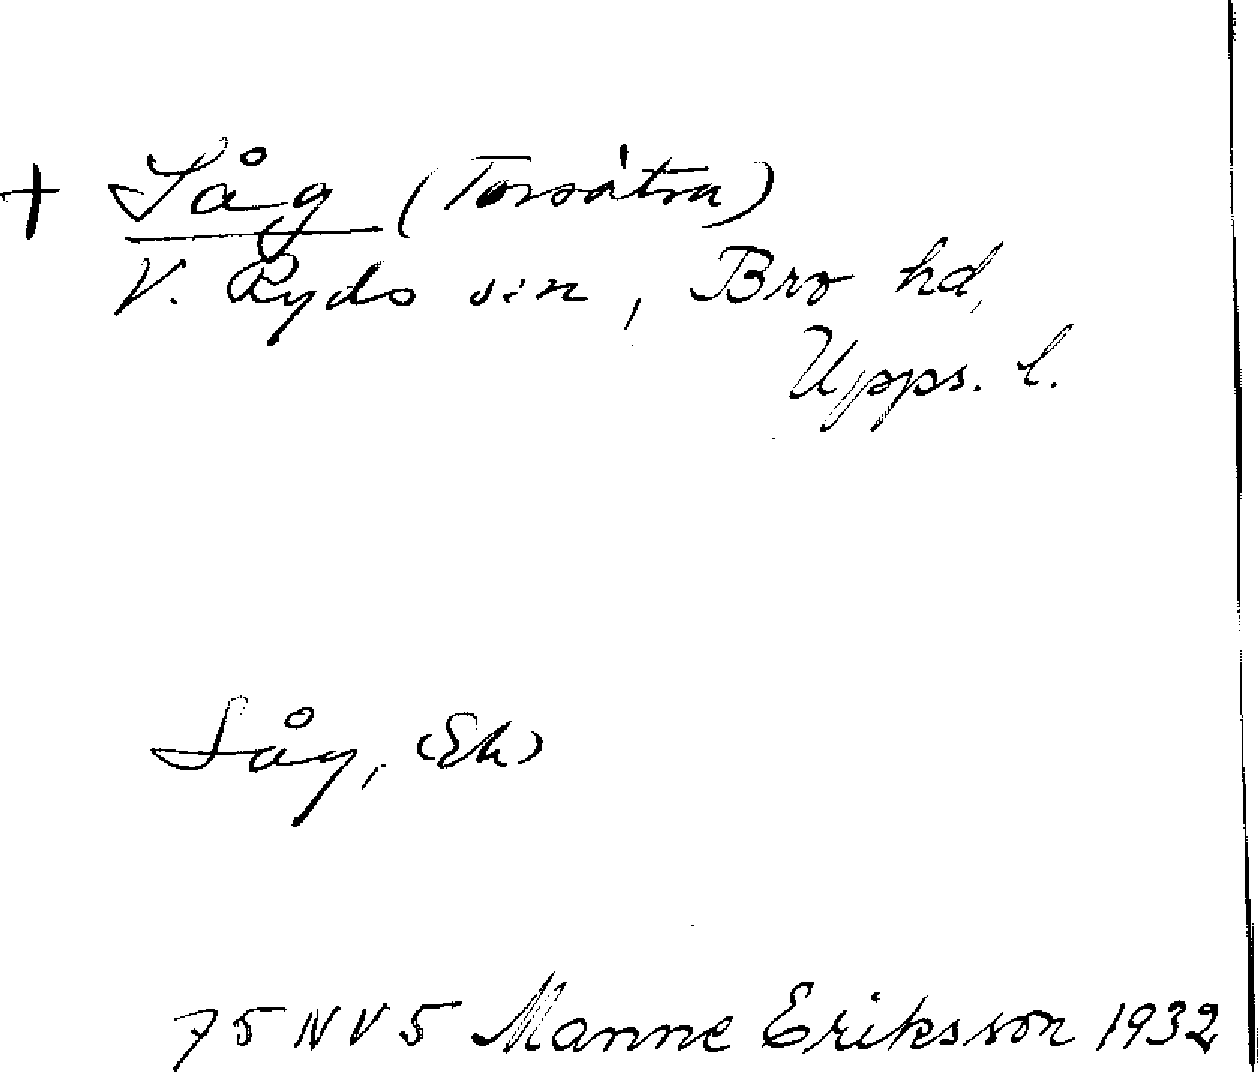 + Såg (Torsätra)
V. Ryds sn, Bro hd,
Upps. l.
Såg, (Ek)
75 NV 5 Manne Eriksson 1932